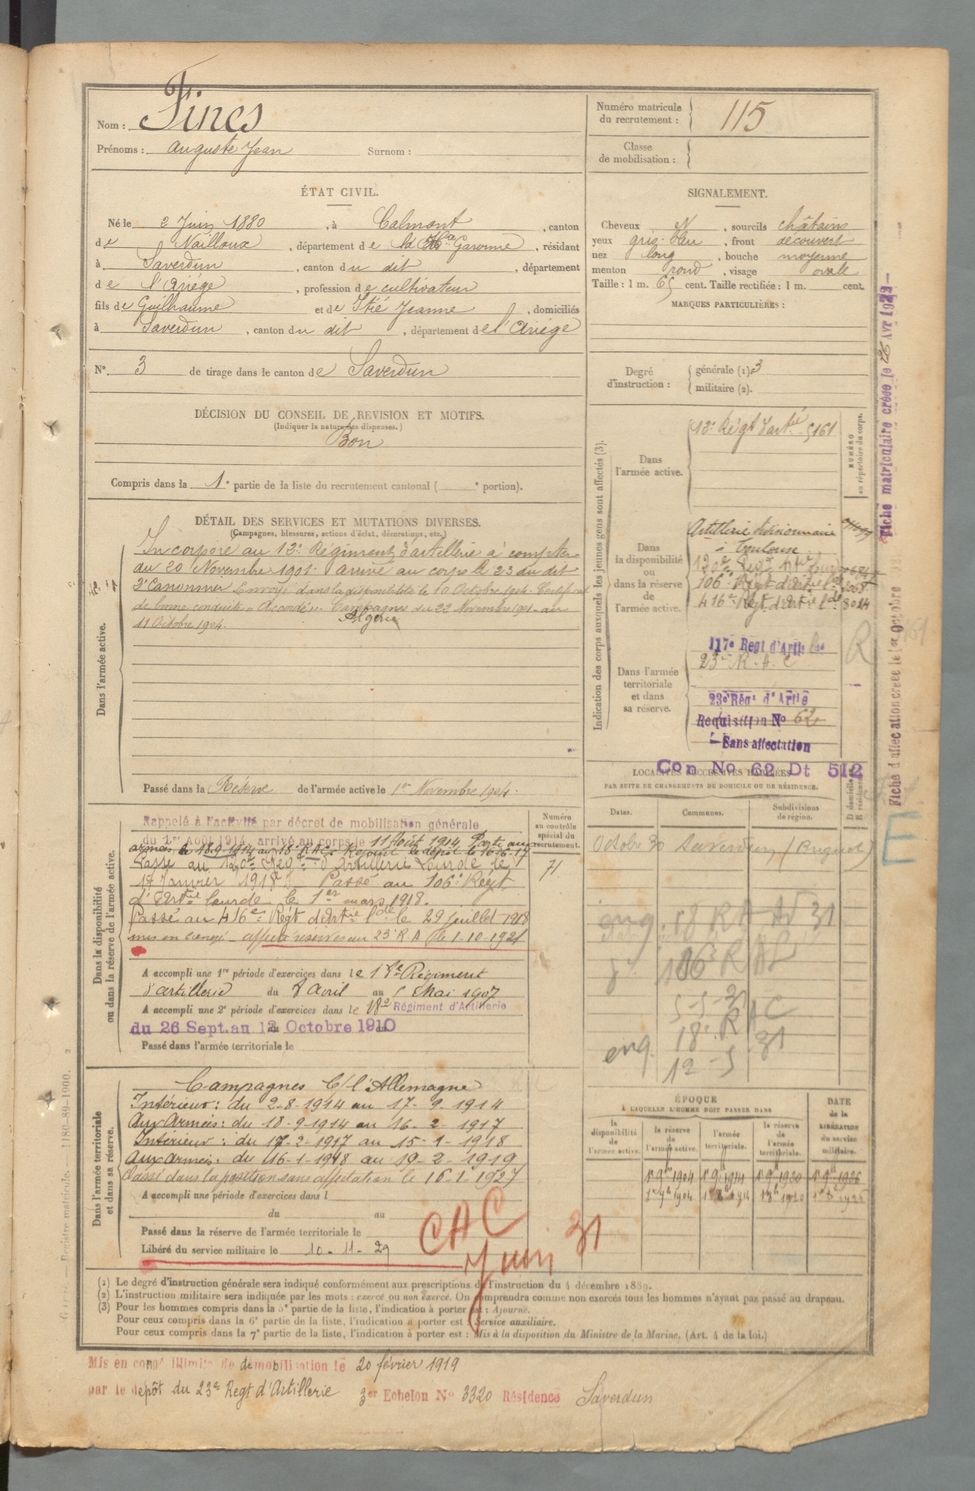 Nom : Fines
Prénoms : Auguste Jean Surnom :
Numéro matricule du recrutement : 115
Classe de mobilisation :
ÉTAT CIVIL.
Né le 2 Juin 1880, à Calmont, canton
de Nailloux, département de la Hte Garonne, résidant
à Saverdun, canton du dit, département
de l'Ariége, profession de cultivateur
fils de Guilhaume et de Itié Jeanne, domiciliés
à Saverdun, canton du dit, département de l'Ariége
N° 3 de tirage dans le canton de Saverdun
SIGNALEMENT.
Cheveux N, sourcils châtains
yeux gris-bleu, front découvert
nez long, bouche moyenne
menton rond, visage ovale
Taille : 1 m. 65 cent. Taille rectifiée : 1 m. cent.
MARQUES PARTICULIÈRES :
Degré d'instruction : générale (1) 3
militaire (2).
DÉCISION DU CONSEIL DE REVISION ET MOTIFS.
(Indiquer la nature des dispenses.)
Bon
Compris dans la 1e partie de la liste du recrutement cantonal ( e portion).
DÉTAIL DES SERVICES ET MUTATIONS DIVERSES.
(Campagnes, blessures, actions d'éclat, décorations, etc.)
Dans l'armée active.
Incorporé au 13e Régiment d'artillerie à compter
du 20 Novembre 1901. Arrivé au corps le 23 du dit
2e Canonnier. Envoyé dans la disponibilité le 10 Octobre 1904. Certificat
de bonne conduite "Accordé". Campagnes du 22 Novembre 1901 au
11 Octobre 1904. Algérie
Passé dans la Réserve de l'armée active le 1er Novembre 1904.
Indication des corps auxquels les jeunes gens sont affectés (3).
NUMÉRO au répertoire du corps.
Dans l'armée active.
13e Régt d'artie 5161
Dans la disponibilité ou dans la réserve de l'armée active.
Artillerie divisionnaire
à Toulouse
106e Régt d'artie lde
416e Régt d'artie lde 3024
Dans l'armée territoriale et dans sa réserve.
117e Regt d'Artie lde
23e R. A. C
23e Rég. d'Artie
Requisition No 62
Sans affectation
Con No 62 Dt 512
R
E
Fiche matriculaire créée le 26 Avr 1923
Fiche d'affectation créée le 1er Octobre
LOCALITÉS SUCCESSIVES HABITÉES
PAR SUITE DE CHANGEMENTS DE DOMICILE OU DE RÉSIDENCE.
Dates. Communes. Subdivisions de région.
Octobre 30 Saverdun
eng. 18 R A D 31
106 R A L
5-5-30
18e R A C
eng. 12-5-31
Dans la disponibilité ou dans la réserve de l'armée active.
Numéro au contrôle spécial du recrutement.
71
Rappelé à l'activité par décret de mobilisation générale
du 1er Août 1914, arrivé au corps le 11 Août 1914. Parti aux
armées le 18-9-1914 au 18e R.A.
Passé au 120e Regt d'Artillerie Lourde le
17 Janvier 1918. Passé au 106e Régt
d'Artrie lourde le 1er mars 1918.
Passé au 416e Régt d'Artie lde le 29 juillet 1918
mis en congé - affecté réserves au 23e R A le 1-10-1921
A accompli une 1re période d'exercices dans le 18e Régiment
d'artillerie du 8 Avril au 5 Mai 1907
A accompli une 2e période d'exercices dans le 18e Régiment d'Artillerie
du 26 Sept. au 12 Octobre 1910
Passé dans l'armée territoriale le
Dans l'armée territoriale et dans sa réserve.
Campagnes C/ l'Allemagne
Intérieur : du 2-8-1914 au 17-9-1914
Aux Armées : du 18-9-1914 au 16-2-1917
Intérieur : du 17-2-1917 au 15-1-1918
Aux Armées : du 16-1-1918 au 19-2-1919
Passé dans la position sans affectation le 16-1-1927
A accompli une période d'exercices dans l
du au
Passé dans la réserve de l'armée territoriale le
Libéré du service militaire le 10-11-29
CAC
Juin 31
ÉPOQUE
À LAQUELLE L'HOMME DOIT PASSER DANS
la disponibilité de l'armée active. la réserve de l'armée active. l'armée territoriale. la réserve de l'armée territoriale. DATE de la LIBÉRATION du service militaire.
1er 9bre 1904 1er 9bre 1914 1er 9bre 1920 1er 9bre 1926
(1) Le degré d'instruction générale sera indiqué conformément aux prescriptions de l'instruction du 4 décembre 1889.
(2) L'instruction militaire sera indiquée par les mots : exercé ou non exercé. On comprendra comme non exercés tous les hommes n'ayant pas passé au drapeau.
(3) Pour les hommes compris dans la 5e partie de la liste, l'indication à porter est : Ajourné.
Pour ceux compris dans la 6e partie de la liste, l'indication à porter est : Service auxiliaire.
Pour ceux compris dans la 7e partie de la liste, l'indication à porter est : Mis à la disposition du Ministre de la Marine, (Art. 4 de la loi.)
Mis en congé illimité de démobilisation le 20 février 1919
par le dépôt du 23e Regt d'Artillerie 3er Echelon No 3320 Résidence Saverdun